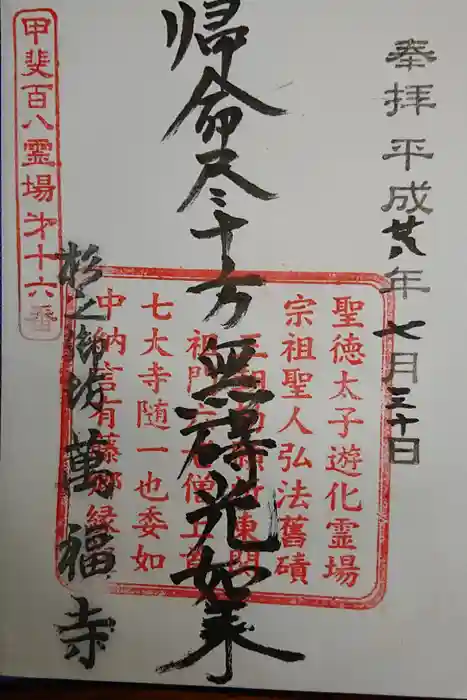 奉拝 平成廿八年 七月三十日
帰命尽十方無碍光如来
聖徳太子遊化霊場
宗祖聖人弘法舊蹟
七大寺随一也委如
甲斐百八霊場才十六番
杉之御坊 萬福寺